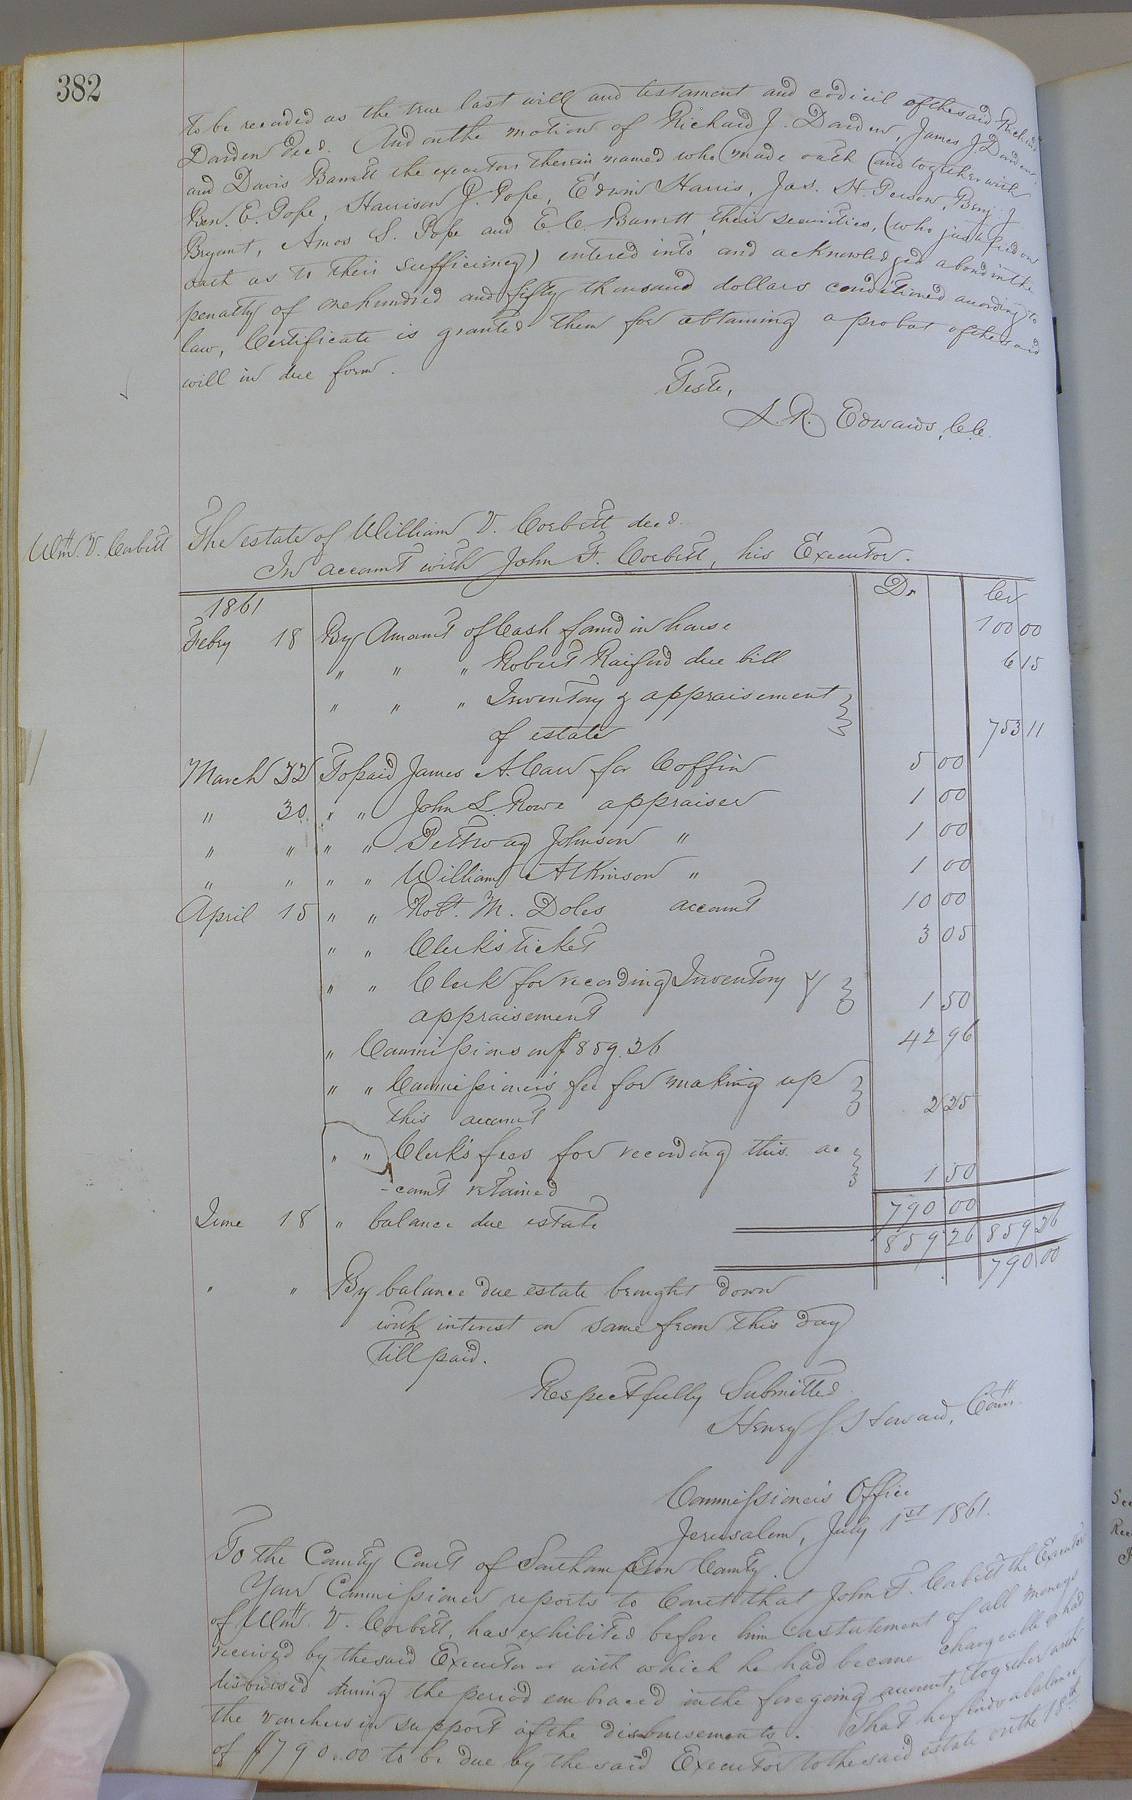 382
to be recorded as the true last will and testament and codicil of the said Richard
Darden decd. And on the motion of Richard J. Darden, James J Darden
and Davis Barrett the executors therein named who made oath and together with
Ben. E. Pope, Harrison J. Pope, Edwin Harris, Jas. H. Person, Benj J.
Bryant, Amos S. Pope and E C Barrett, their securities, (who justified on
oath as to their sufficiency) entered into and acknowledged a bond in the
penalty of one hundred and fifty thousand dollars conditioned according to
law, Certificate is granted them for obtaining a probat of the said
will in due form.
Teste,
L. R. Edwards, C.C.
Wm. V. Corbitt
The estate of William V. Corbitt decd.
In account with John F. Corbitt, his Executor.
1861 Dr Cr
Febry 18 By Amount of Cash found in house 100 00
" " " Robert Raiford due bill 6 15
" " " Inventory & appraisement
of estate 753 11
March 22 To paid James A. Carr for Coffin 5 00
" 30 " " John S. Rowe appraiser 1 00
" " " " Pettway Johnson " 1 00
" " " " William Atkinson " 1 00
April 15 " " Robt. M. Doles account 10 00
" " Clerk's ticket 3 05
" " Clerk for recording Inventory &
appraisement 1 50
" Commissions on $859.26 42 96
" " Commissioner's fee for making up
this account 2 25
" " Clerk's fees for recording this ac
-count retained 1 50
June 18 " balance due estate 790 00
859 26 859 26
" " By balance due estate brought down 790 00
with interest on same from this day
till paid.
Respectfully Submitted
Henry Howard, Comr.
Commissioner's Office
Jerusalem, July 1st 1861.
To the County Court of Southampton County.
Your Commissioner reports to Court that John F. Corbitt the Executor
of Wm. V. Corbitt, has exhibited before him a statement of all moneys
received by the said Executor or with which he had become chargeable or had
disbursed during the period embraced in the foregoing account, together with
the vouchers in support of the disbursements. That he finds a balance
of $790.00 to be due by the said Executor to the said estate on the 18th